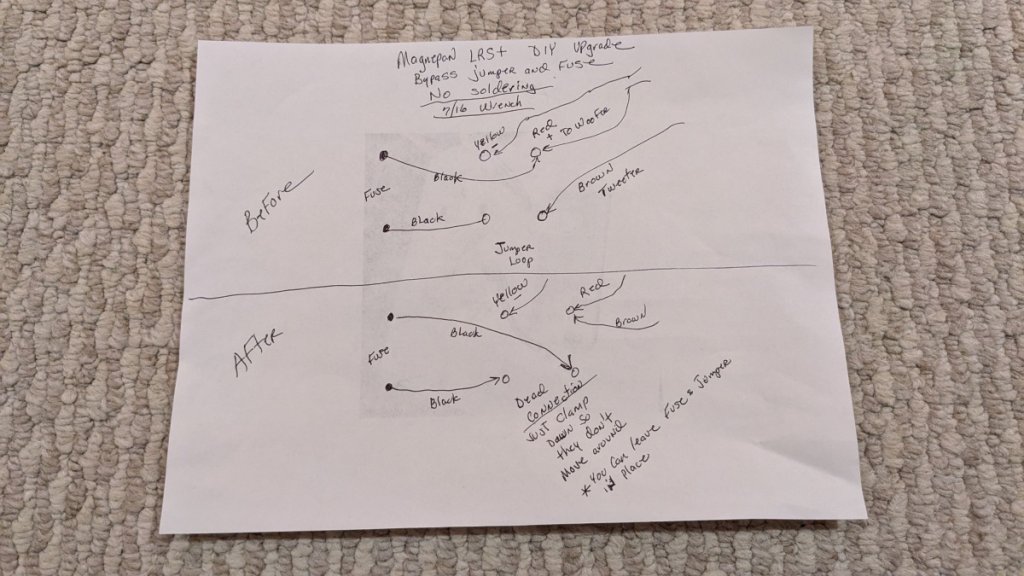 Magnepan LRS+ DIY Upgrade
Bypass Jumper and Fuse
No Soldering
7/16 Wrench
Before
Yellow
-
Red
+ To Woofer
Black
Fuse
Brown
Tweeter
Black
Jumper
Loop
After
Yellow
-
Red
Black
Brown
Fuse
Black
Dead
Connection
Just Clamp
Down so
they don't
Move around
* You Can leave Fuse & Jumper
in place